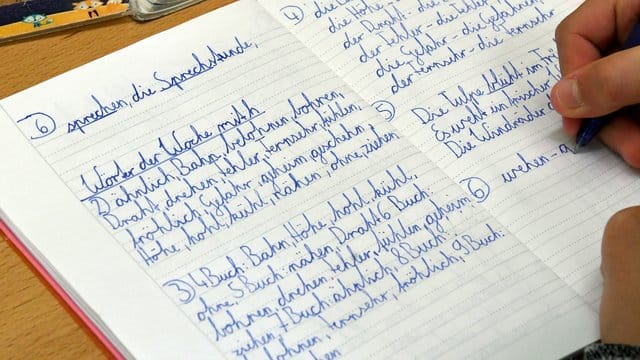 ⑥ sprechen, die Sprechstunde,
Wörter der Woche mit h
2) ähnlich, Bahn, belohnen, bohren,
Draht, drehen, fehler, fernsehr, fühlen,
fröhlich, Gefahr, geheim, geschehn
Höhe, hohl, kühl, nähen, ohne, ziehen
③ 4 Buch: Bahn, Höhe, hohl, kühl,
ohne, 5 Buch: nähen, Draht 6 Buch:
bohren, drehen, fehler, fühlen, geheim
ziehen, 7 Buch: ähnlich, 8 Buch:
lohnen, fernsehr, fröhlich, 9 Buch:
④ die
die Höhe
der Draht - die
der Fehler - die Fehler
die Gefahr - die Gefahren,
der fernsehr - die fernsehr
⑤ Die Tulpe blüht im
Es weht ein frischer
Die Windräder
⑥